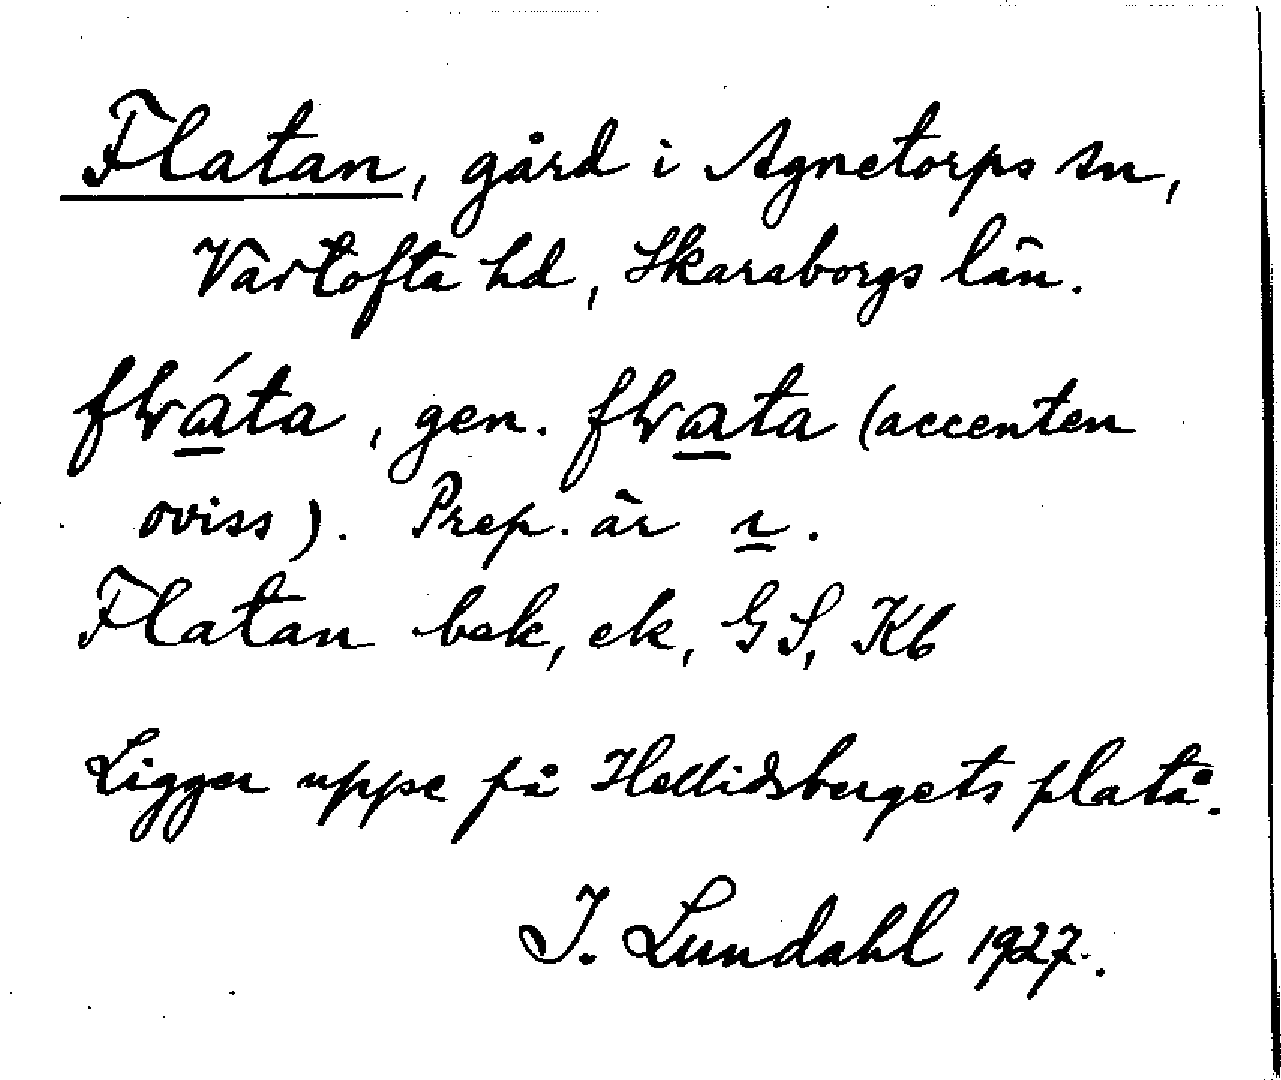 Flatan, gård i Agnetorps sn,
Vartofta hd, Skaraborgs län.
flváta, gen. flvata (accenten
oviss). Prep. är ı.
Flatan bek, ek, GS, Kb
Ligger uppe på Hellidsbergets platå.
I. Lundahl 1927.